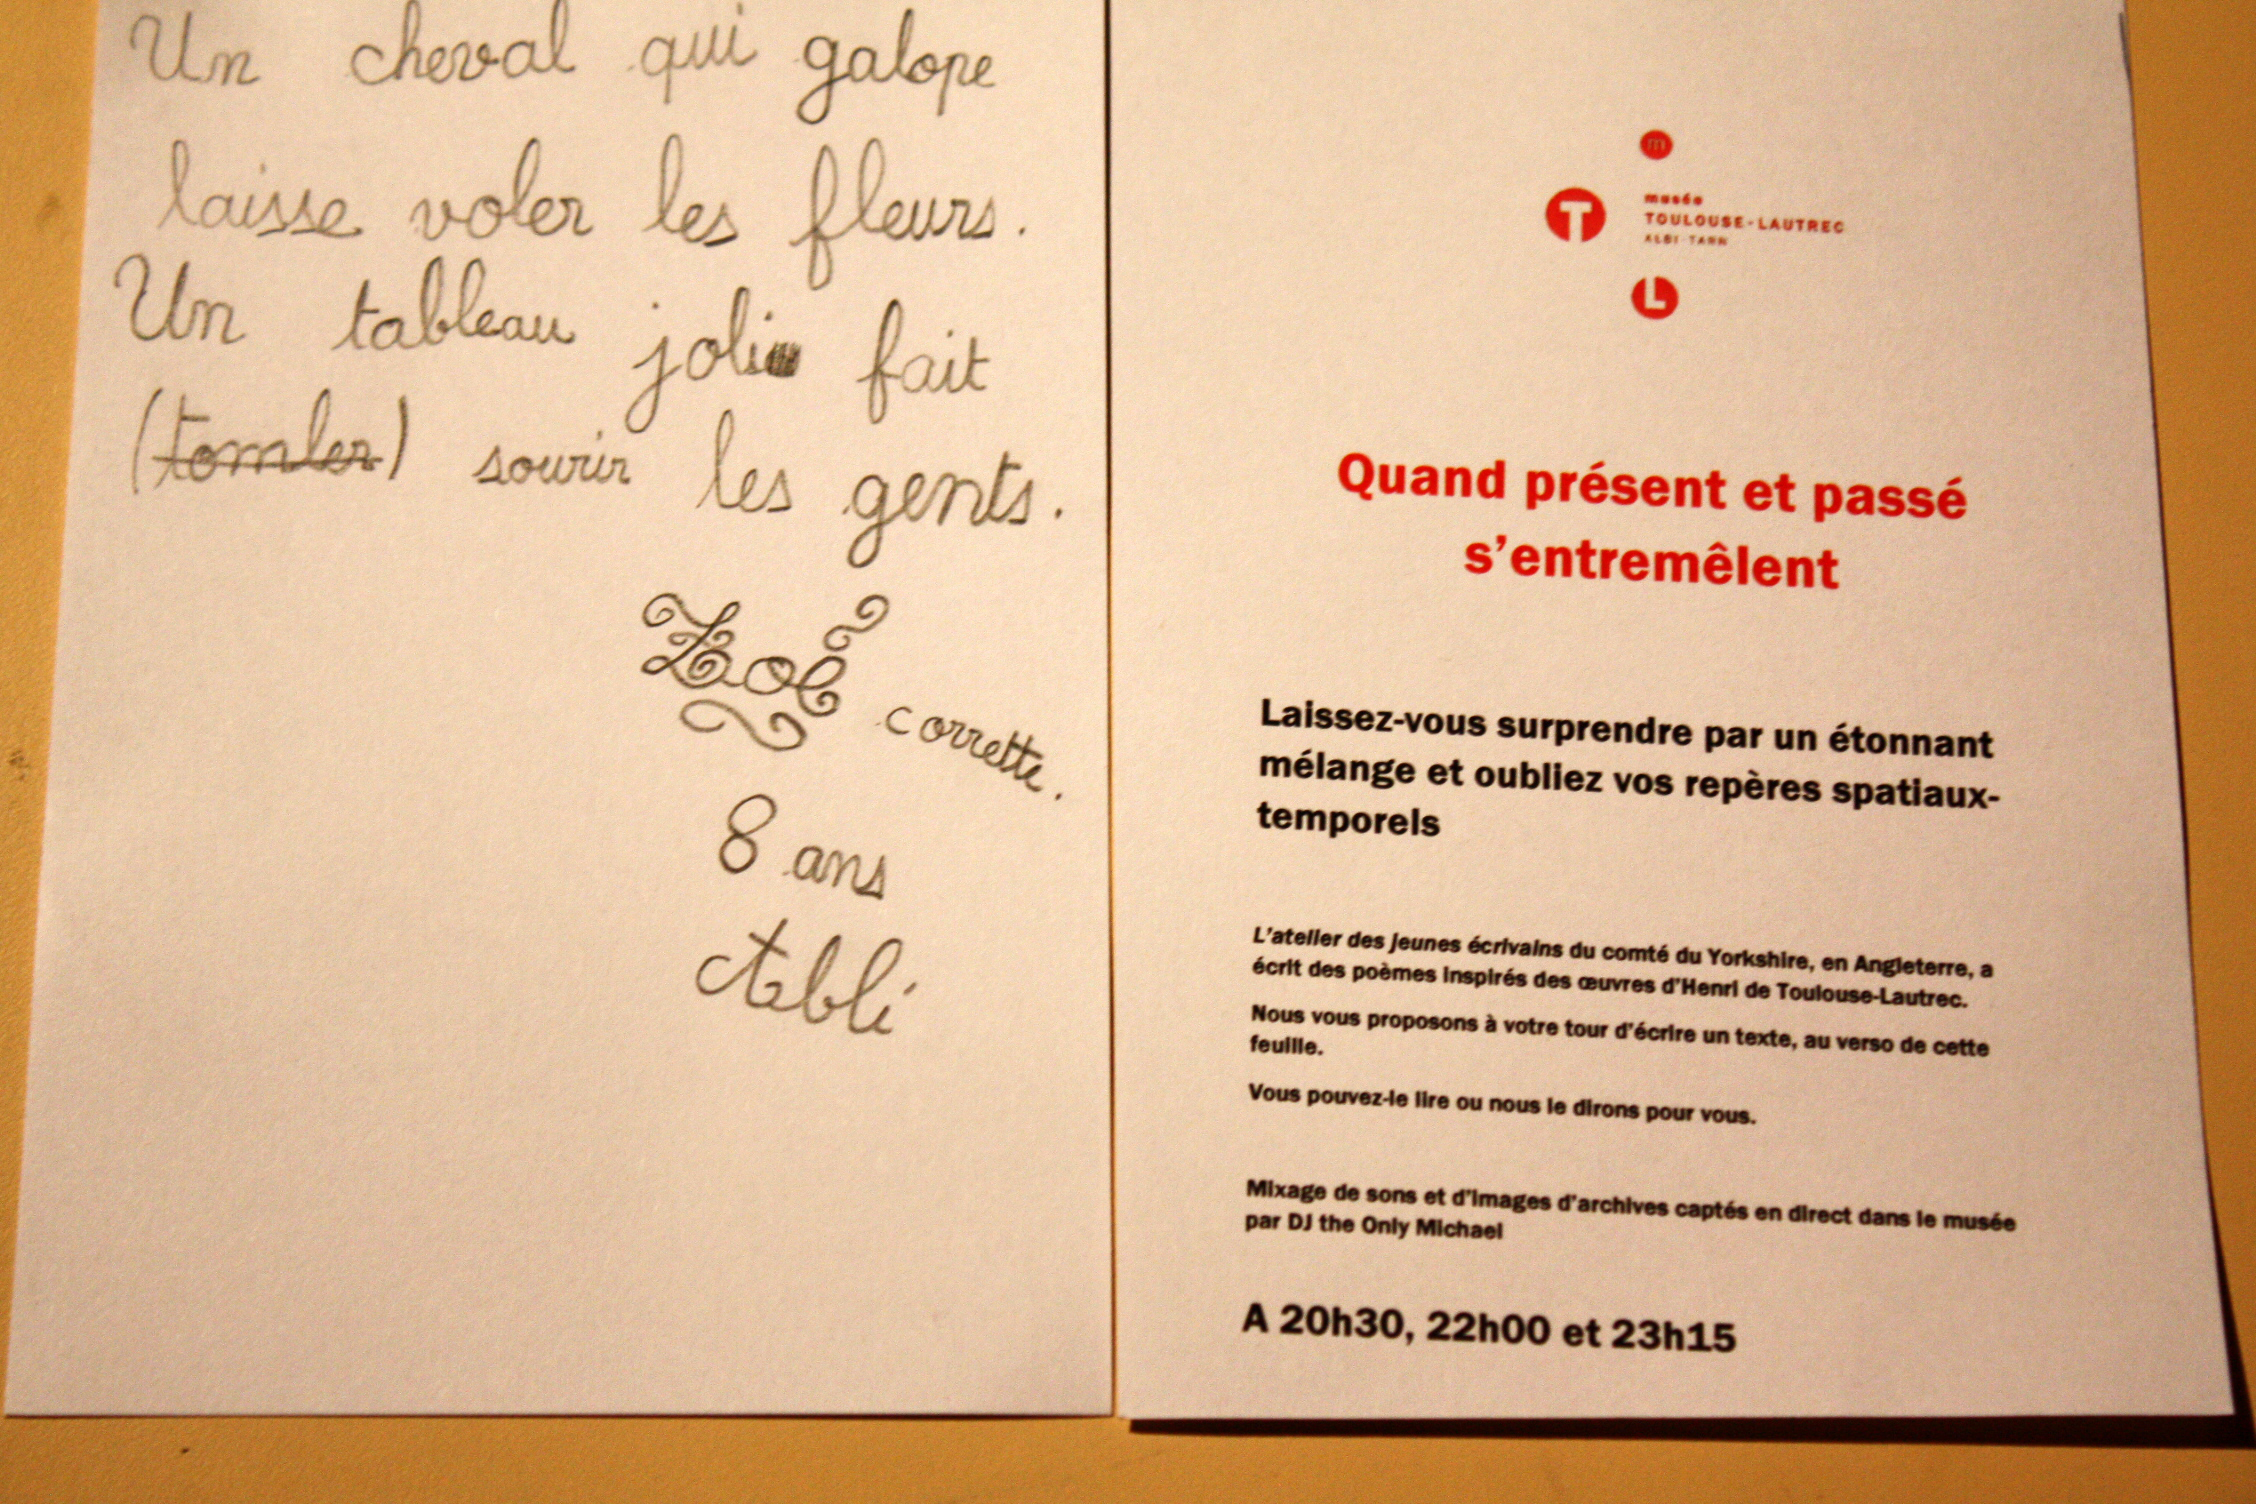 Un cheval qui galope
laisse voler les fleurs.
Un tableau joli fait
(tomler) sourir les gents.
Zoé corrette.
8 ans
Albi
m
T
musée
TOULOUSE-LAUTREC
ALBI-TARN
L
Quand présent et passé
s'entremêlent
Laissez-vous surprendre par un étonnant
mélange et oubliez vos repères spatiaux-
temporels
L'atelier des jeunes écrivains du comté du Yorkshire, en Angleterre, a
écrit des poèmes inspirés des œuvres d'Henri de Toulouse-Lautrec.
Nous vous proposons à votre tour d'écrire un texte, au verso de cette
feuille.
Vous pouvez-le lire ou nous le dirons pour vous.
Mixage de sons et d'images d'archives captés en direct dans le musée
par DJ the Only Michael
A 20h30, 22h00 et 23h15